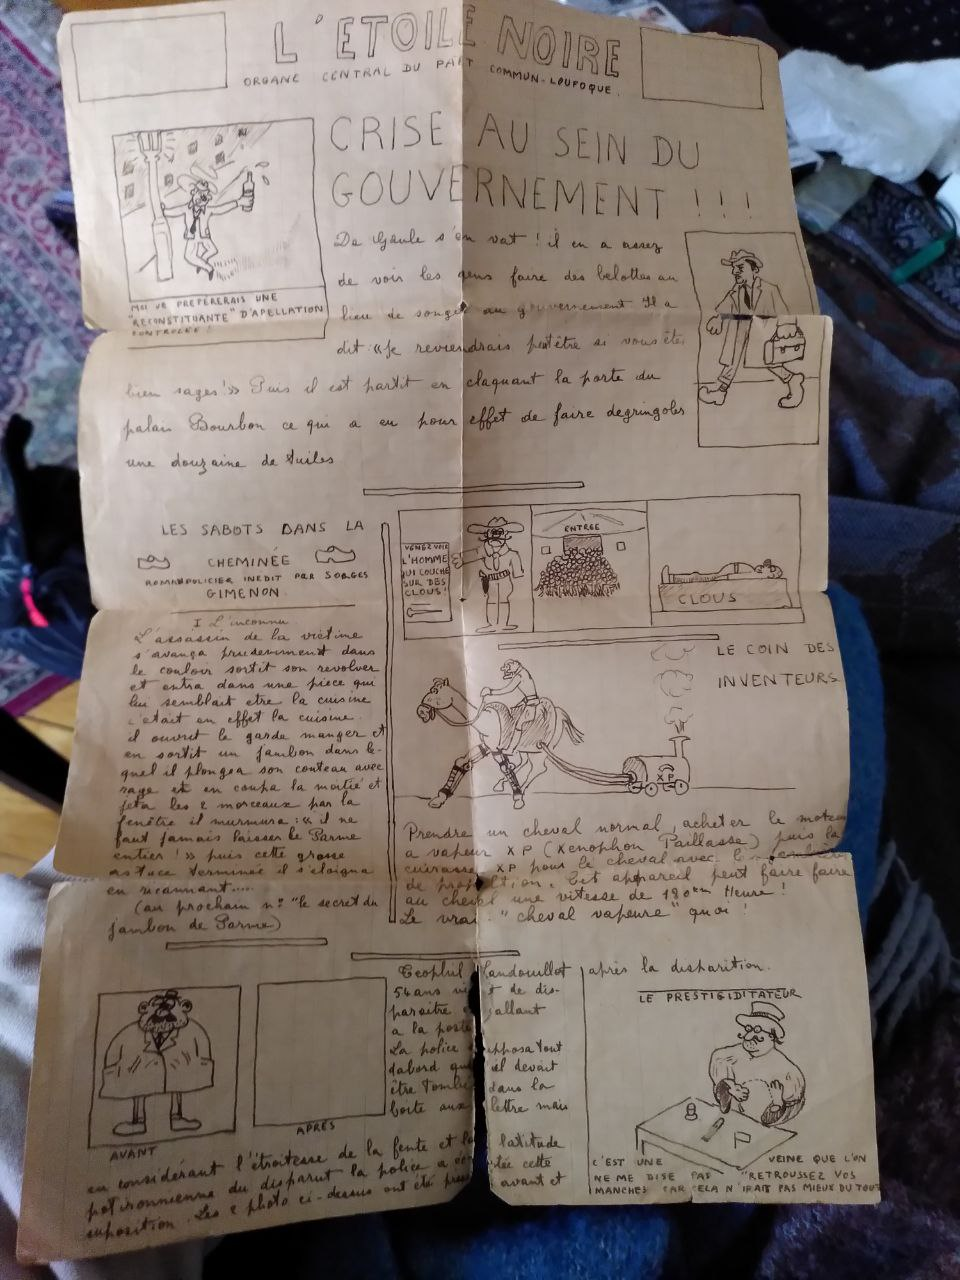 L'ETOILE NOIRE
ORGANE CENTRAL DU PART COMMUN-LOUFOQUE.
CRISE AU SEIN DU
GOUVERNEMENT !!!
MOI JE PREFERERAIS UNE
"RECONSTITUANTE" D'APELLATION
CONTROLEE !
De Gaule s'en vat ! il en a assez
de voir les gens faire des belottes au
lieu de songer au gouvernement. Il a
dit : «Je reviendrais peutêtre si vous êtes
bien sages!» Puis il est partit en claquant la porte du
palais Bourbon ce qui a eu pour effet de faire degringoler
une douzaine de tuiles
LES SABOTS DANS LA
CHEMINÉE
ROMAN POLICIER INEDIT PAR SORGES
GIMENON.
I L'inconnu.
L'assassin de la victime
s'avança prudemment dans
le couloir sortit son revolver
et entra dans une piece qui
lui semblait etre la cuisine
c'etait en effet la cuisine.
il ouvrit le garde manger et
en sortit un jambon dans le-
quel il plongea son couteau avec
rage et en coupa la moitié et
jeta les 2 morceaux par la
fenêtre il murmura : « il ne
faut jamais laisser le Parme
entier ! » puis cette grosse
astuce terminée il s'eloigna
en ricannant.....
(au prochain n°: "le secret du
jambon de Parme)
VENEZ VOIR
L'HOMME
QUI COUCHE
SUR DES
CLOUS!
ENTREE
CLOUS
LE COIN DES
INVENTEURS
XP
Prendre un cheval normal, acheter le moteur
a vapeur XP (Xenophon Paillasse) puis la
cuirasse XP pour le cheval avec
de propulsion. Cet appareil peut faire faire
au cheval une vitesse de 180 km Heure !
Le vrai "cheval vapeure" quoi !
AVANT
APRÈS
Teophil Landouillot
54 ans vient de dis-
paraitre allant
a la poste
La police supposa tout
dabord qu'il devait
être tombé dans la
boite aux lettre mais
en considérant l'étroitesse de la fente et la latitude
du disparut la police a cette
suposition. Les 2 photo ci-dessus ont été avant et
après la disparition.
LE PRESTIGIDITATEUR
C'EST UNE VEINE QUE L'ON
NE ME DISE PAS "RETROUSSEZ VOS
MANCHES CAR CELA N'IRAIT PAS MIEUX DU TOUT